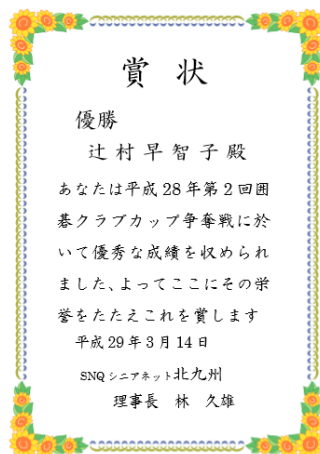 賞 状
優勝
辻村早智子殿
あなたは平成28年第2回囲
碁クラブカップ争奪戦に於
いて優秀な成績を収められ
ました、よってここにその栄
誉をたたえこれを賞します
平成29年3月14日
SNQシニアネット北九州
理事長 林 久雄